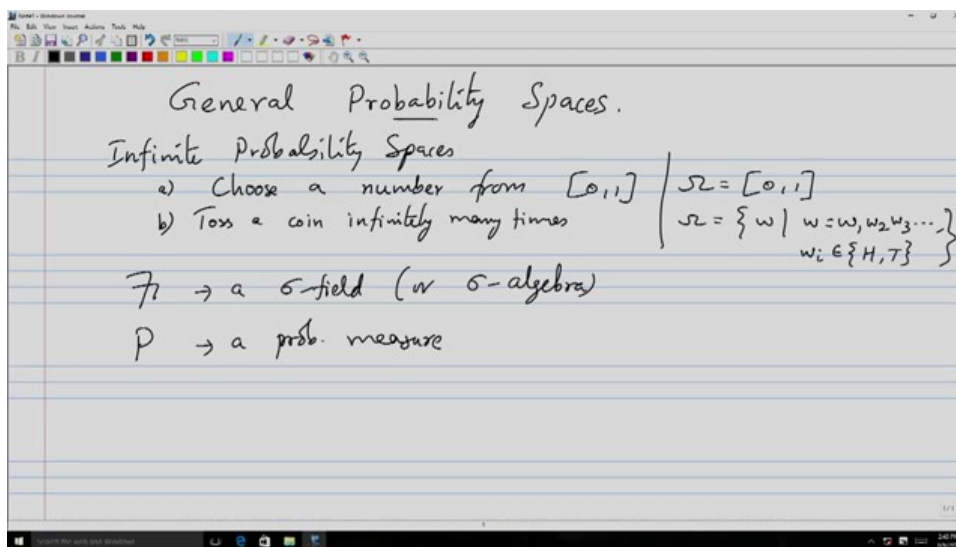 Note1 - Windows Journal
File Edit View Insert Actions Tools Help
B I
General Probability Spaces.
Infinite Probability Spaces
a) Choose a number from [0,1] | Ω = [0,1]
b) Toss a coin infinitely many times | Ω = { ω | ω = ω₁ω₂ω₃....,
ωᵢ ∈ {H,T} }
ℱ → a σ-field (or σ-algebra)
P → a prob. measure
1/1
Search the web and Windows
2:40 PM